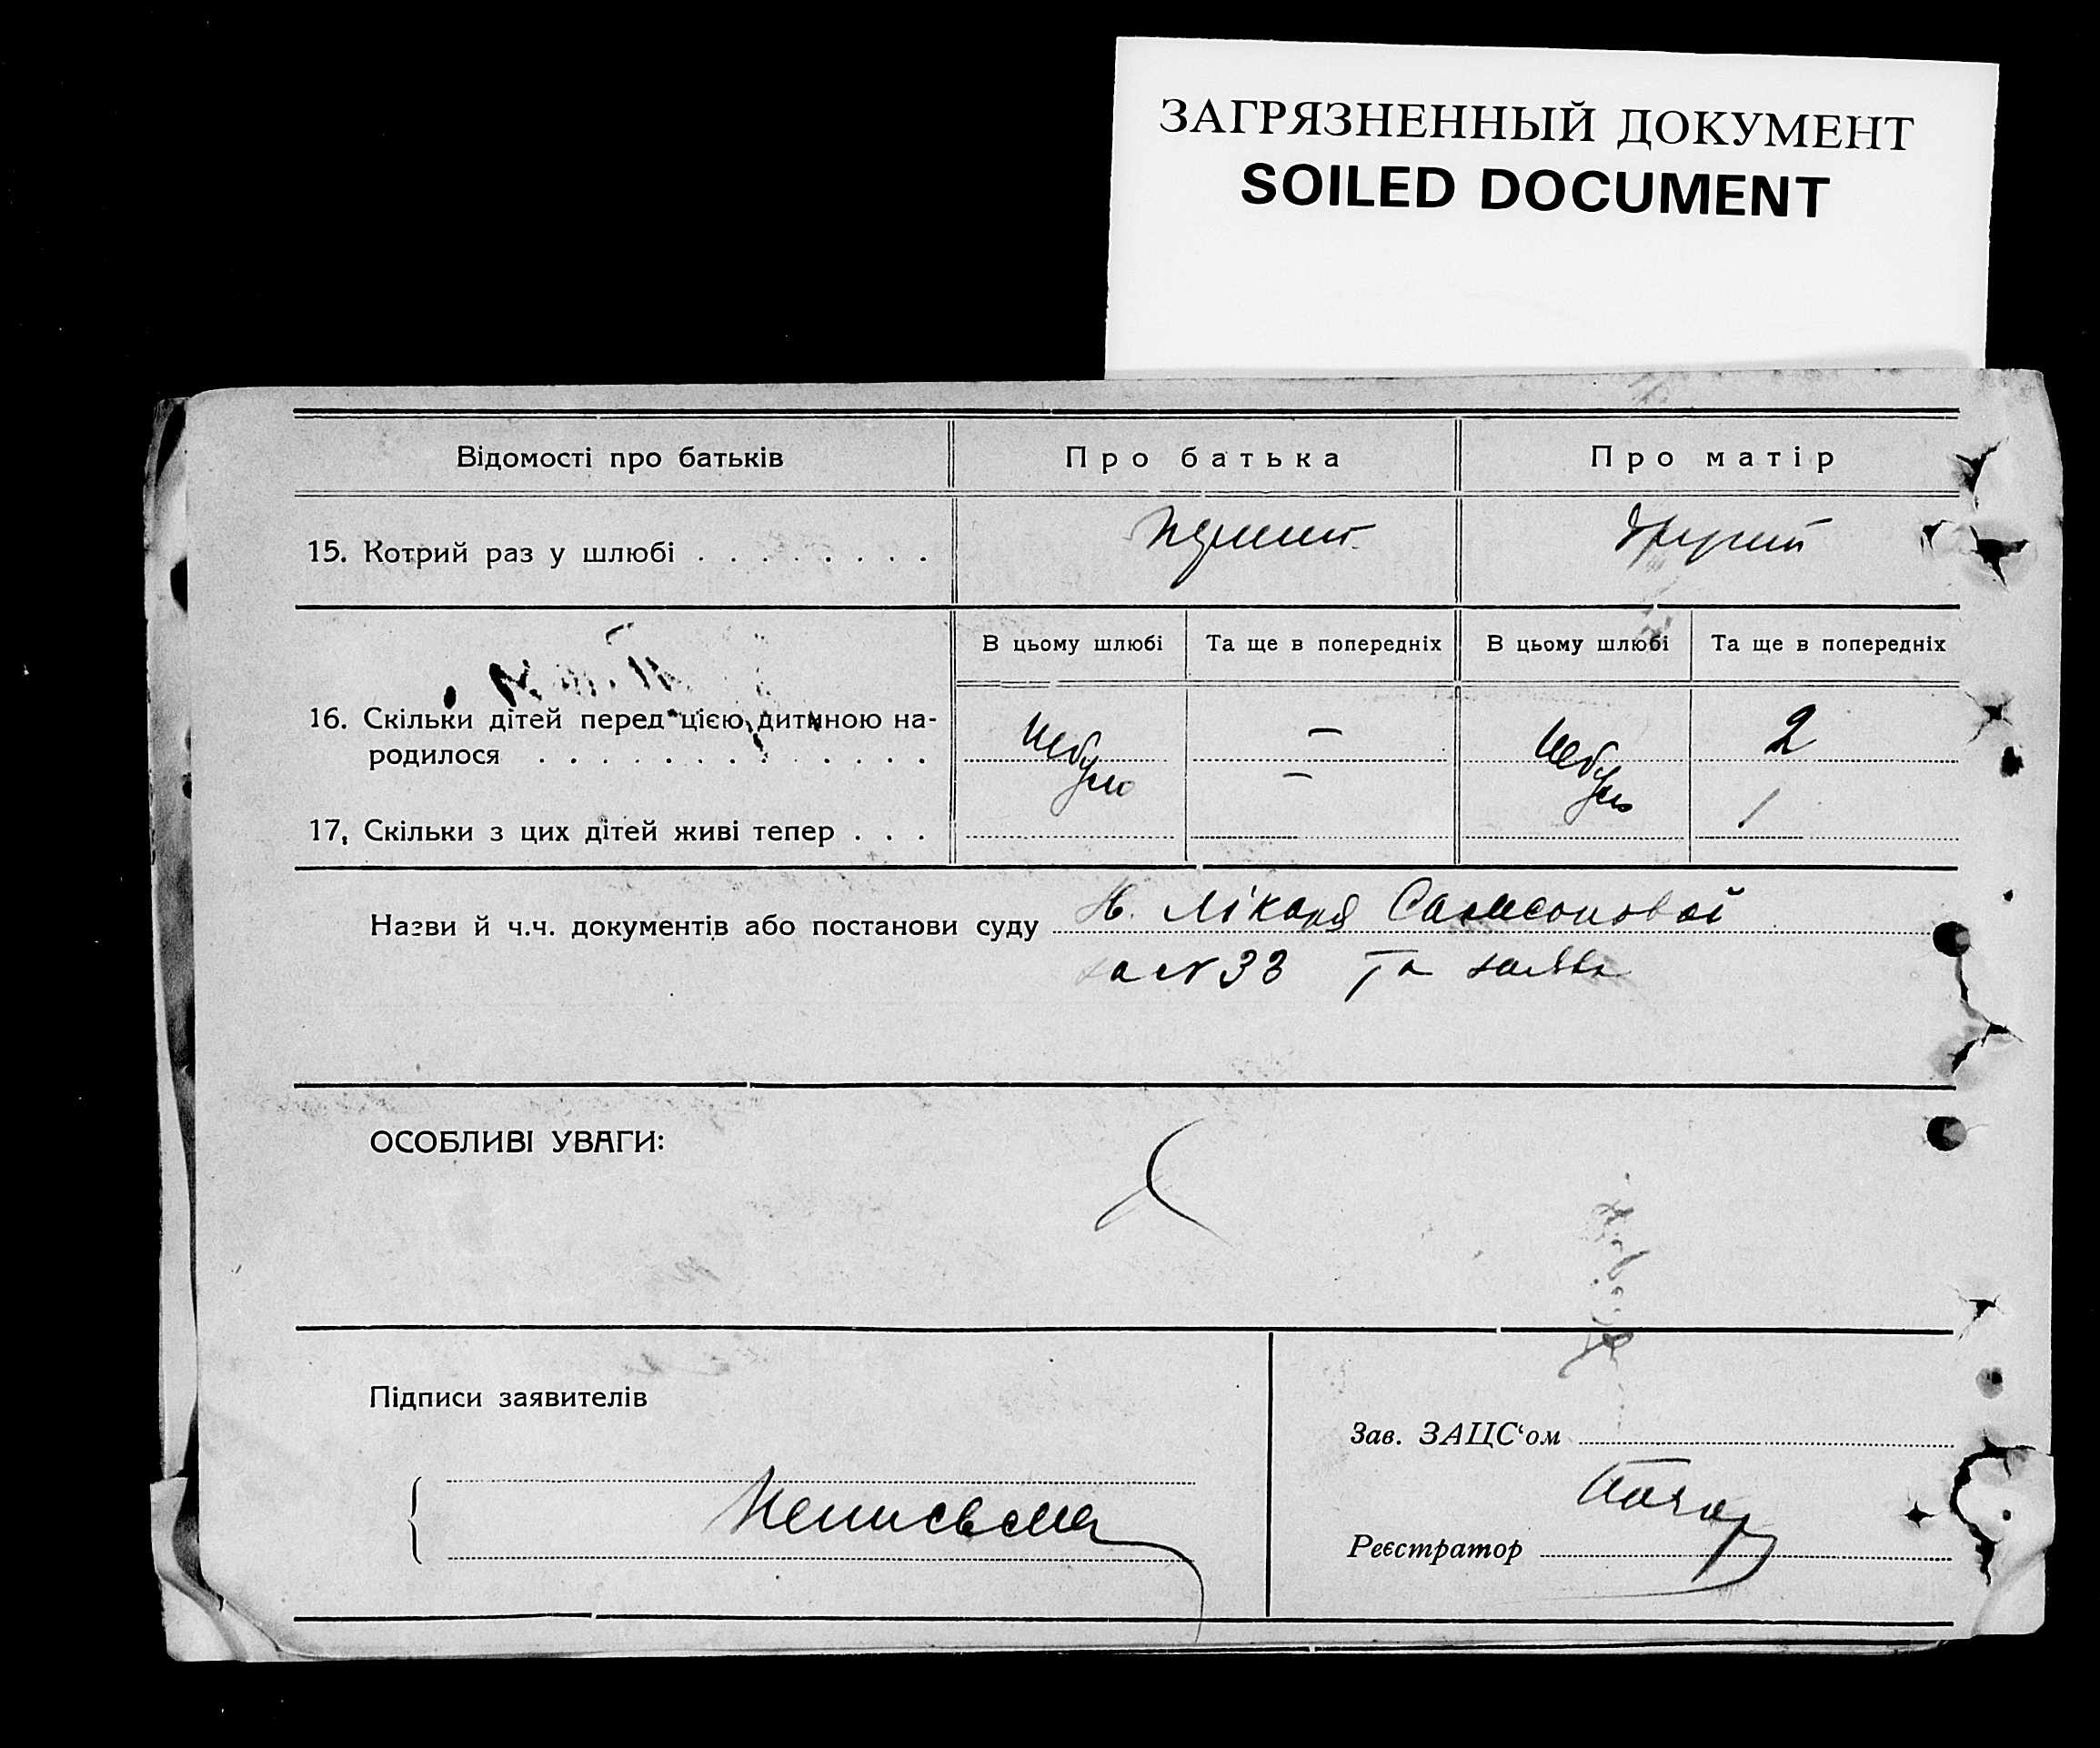 ЗАГРЯЗНЕННЫЙ ДОКУМЕНТ
SOILED DOCUMENT
Відомості про батьків Про батька Про матір
15. Котрий раз у шлюбі . . . . . . . . перший другий
В цьому шлюбі Та ще в попередніх В цьому шлюбі Та ще в попередніх
16. Скільки дітей перед цією дитиною на-
родилося . . . . . . . . . . . . небуло — небуло 2
17. Скільки з цих дітей живі тепер . . . — 1
Назви й ч.ч. документів або постанови суду лікаря Самсонової
за № 33 та заява
ОСОБЛИВІ УВАГИ:
Підписи заявителів
Зав. ЗАЦС‘ом
Реєстратор